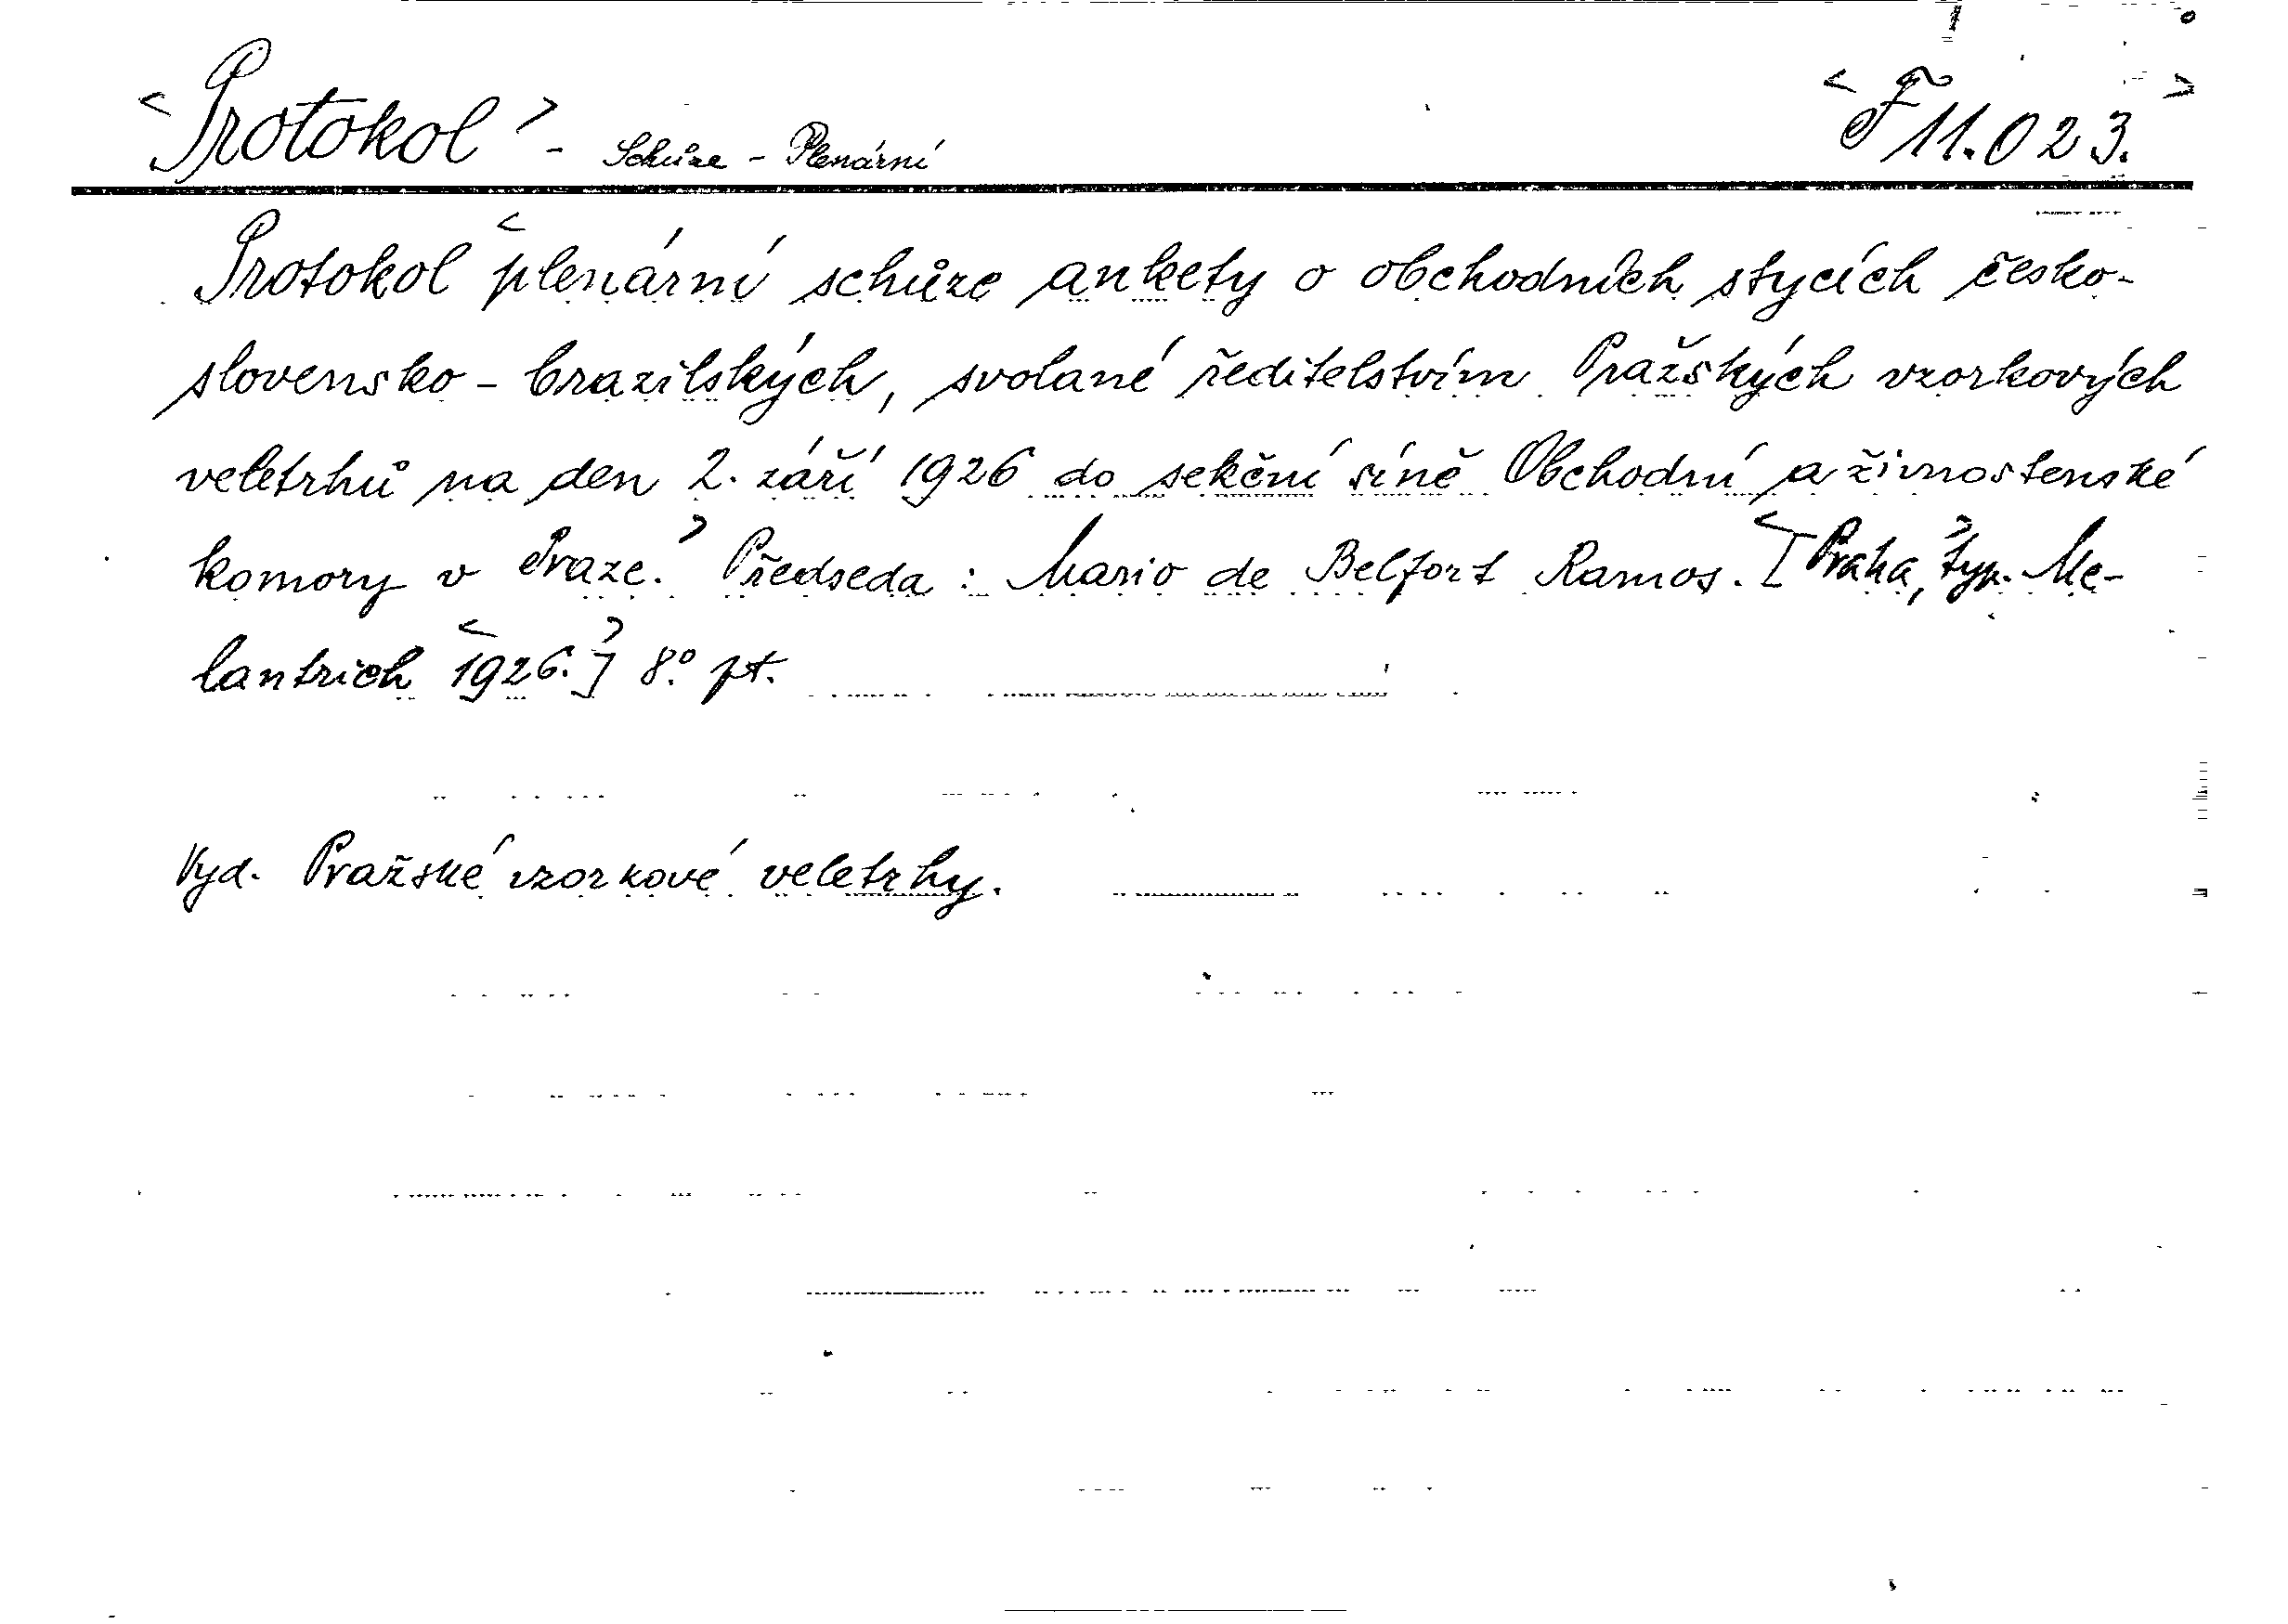 <Protokol> - Schůze - Plenární <F 11.023.>
Protokol <plenární schůze ankety o obchodních stycích česko-
slovensko-brazilských, svolané ředitelstvím Pražských vzorkových
veletrhů na den 2. září 1926 do sekční síně Obchodní a živnostenské
komory v Praze.> Předseda: Mario de Belfort Ramos. <[Praha,> typ. Me-
lantrich <1926.]> 8° pt.
Vyd. Pražské vzorkové veletrhy.